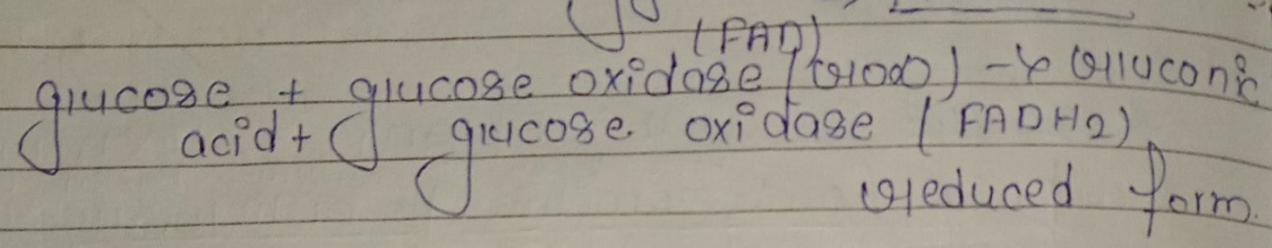 (FAD)
glucose + glucose oxidase (GOD) → Gluconic
acid + glucose oxidase (FADH2)
reduced form.